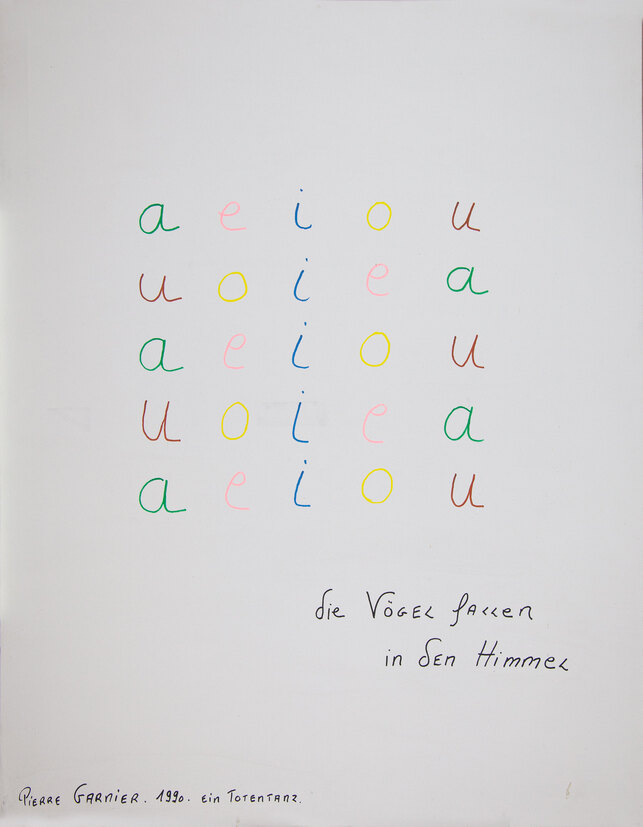 a e i o u
u o i e a
a e i o u
u o i e a
a e i o u
die Vögel fallen
in den Himmel
Pierre Garnier. 1990. ein Totentanz.